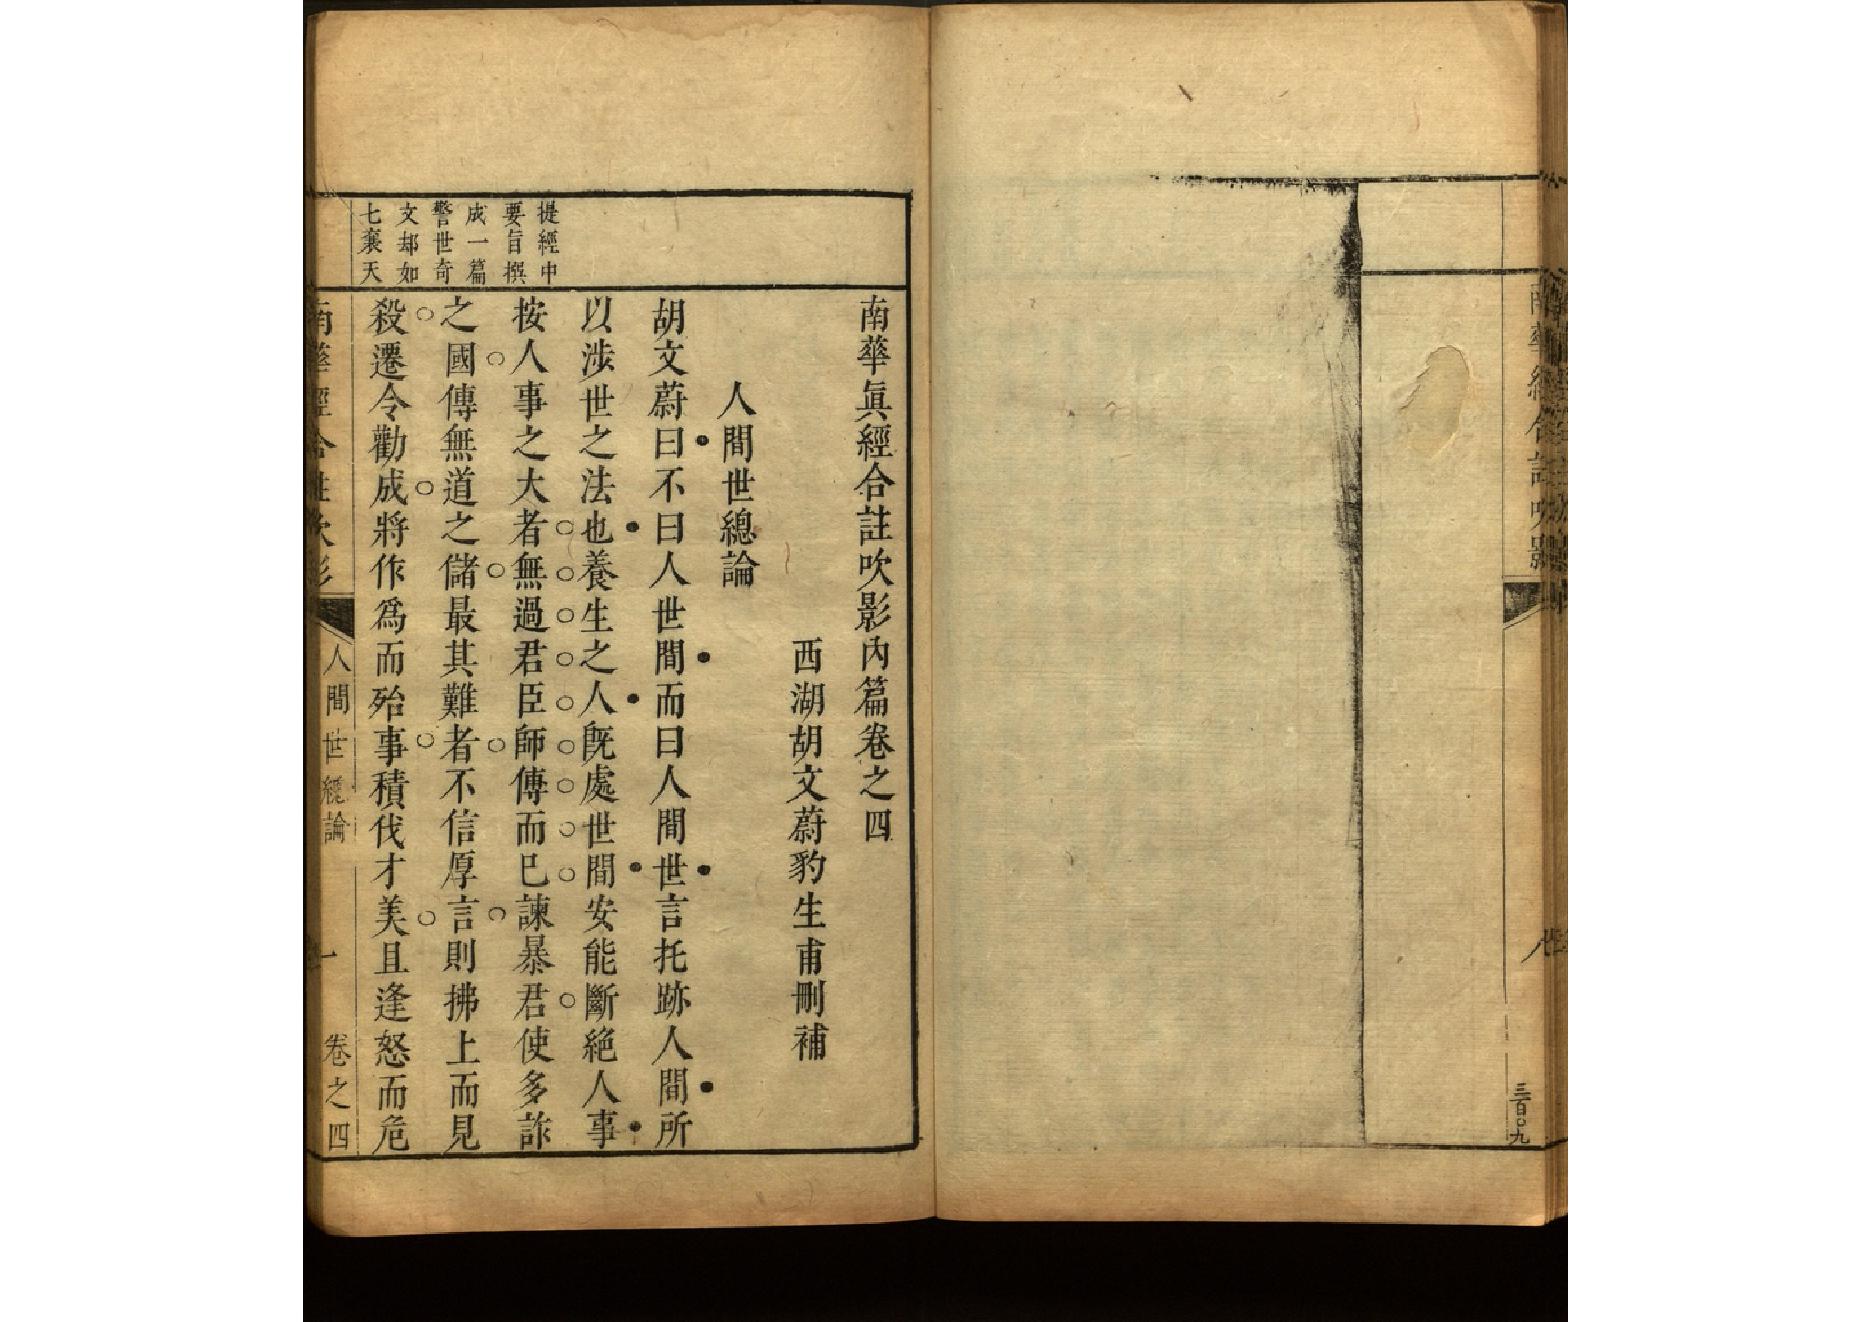 南華經合註吹影
三百〇九
提經中
要旨撰
成一篇
警世奇
文却如
七襄天
南華眞經合註吹影內篇卷之四
西湖胡文蔚豹生甫刪補
人間世總論
胡文蔚曰不曰人世間而曰人間世言托跡人間所
以涉世之法也養生之人旣處世間安能斷絕人事
按人事之大者無過君臣師傅而已諫暴君使多詐
之國傳無道之儲最其難者不信厚言則拂上而見
殺遷令勸成將作爲而殆事積伐才美且逢怒而危
南華經合註吹影
人間世總論
一
卷之四